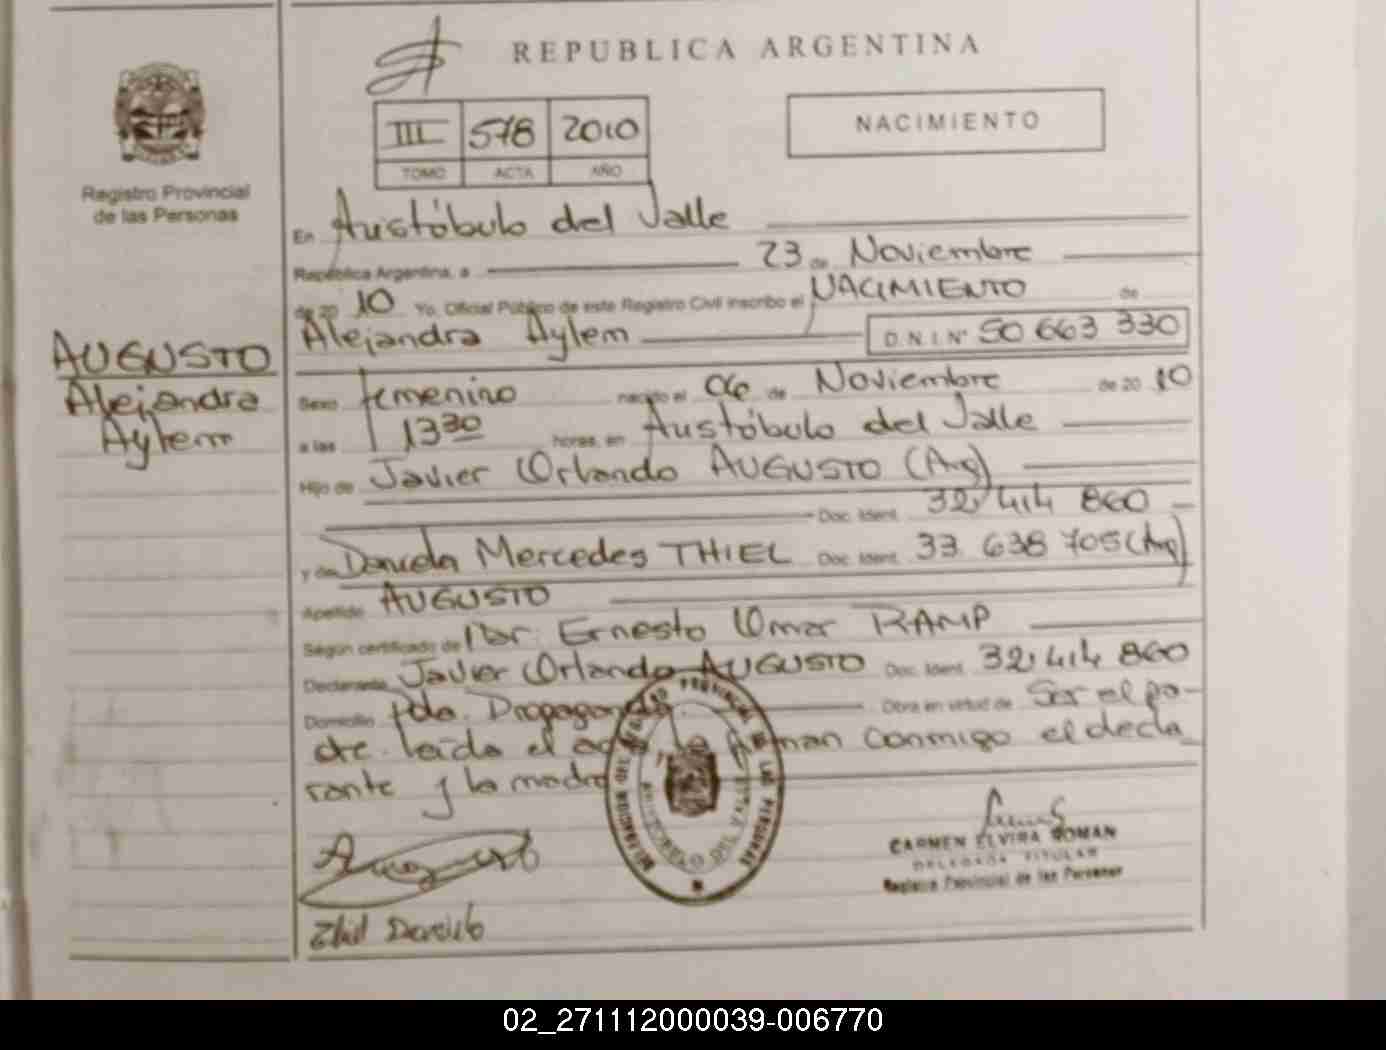 REPUBLICA ARGENTINA
III 578 2010
TOMO ACTA AÑO
NACIMIENTO
Registro Provincial
de las Personas
En Aristóbulo del Valle
República Argentina, a 23 de Noviembre
de 20 10 Yo, Oficial Público de este Registro Civil inscribo el NACIMIENTO de
Alejandra Aylem D.N.I. Nº 50 663 330
AUGUSTO
Alejandra
Aylem
Sexo femenino nacido el 06 de Noviembre de 20 10
a las 13 30 horas, en Aristóbulo del Valle
Hijo de Javier Orlando AUGUSTO (Arg)
Doc. Ident. 32.414 860
y de Daniela Mercedes THIEL Doc. Ident. 33 638 705 (Arg)
Apellido AUGUSTO
Según certificado de Dr. Ernesto Omar RAMP
Declarante Javier Orlando AUGUSTO Doc. Ident. 32.414 860
Domicilio Pda. Obra en virtud de Ser el pa-
dre leída el firman conmigo el decla
rante y la madre
REGISTRO PROVINCIAL DE LAS PERSONAS
CARMEN ELVIRA ROMAN
DELEGADA TITULAR
Registro Provincial de las Personas
02_271112000039-006770